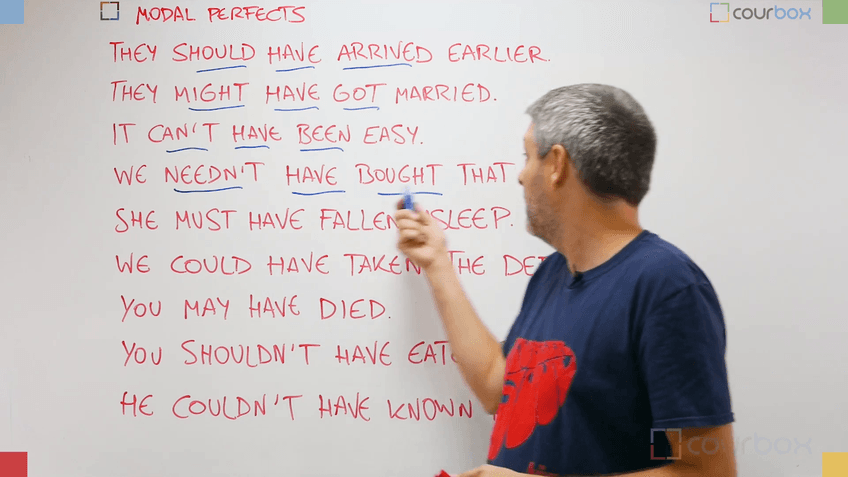 MODAL PERFECTS
courbox
THEY SHOULD HAVE ARRIVED EARLIER.
THEY MIGHT HAVE GOT MARRIED.
IT CAN'T HAVE BEEN EASY.
WE NEEDN'T HAVE BOUGHT THAT
SHE MUST HAVE FALLEN ASLEEP.
WE COULD HAVE TAKEN THE
YOU MAY HAVE DIED.
YOU SHOULDN'T HAVE
HE COULDN'T HAVE KNOWN
courbox